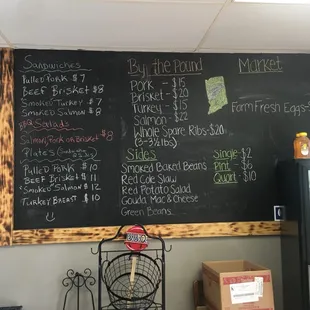 Sandwiches
Pulled Pork $7
Beef Brisket $8
Smoked Turkey $7
Smoked Salmon $8
BBQ Salads
Salmon, Pork or Brisket $8
Plates
Pulled Pork $10
Beef Brisket $11
Smoked Salmon $12
Turkey Breast $10
By the Pound
Pork - $15
Brisket - $20
Turkey - $15
Salmon - $22
Whole Spare Ribs - $20
(3-3½lbs)
Sides
Smoked Baked Beans
Red Cole Slaw
Red Potato Salad
Gouda Mac & Cheese
Green Beans
Single - $2
Pint - $6
Quart - $10
Market
Farm Fresh Eggs -